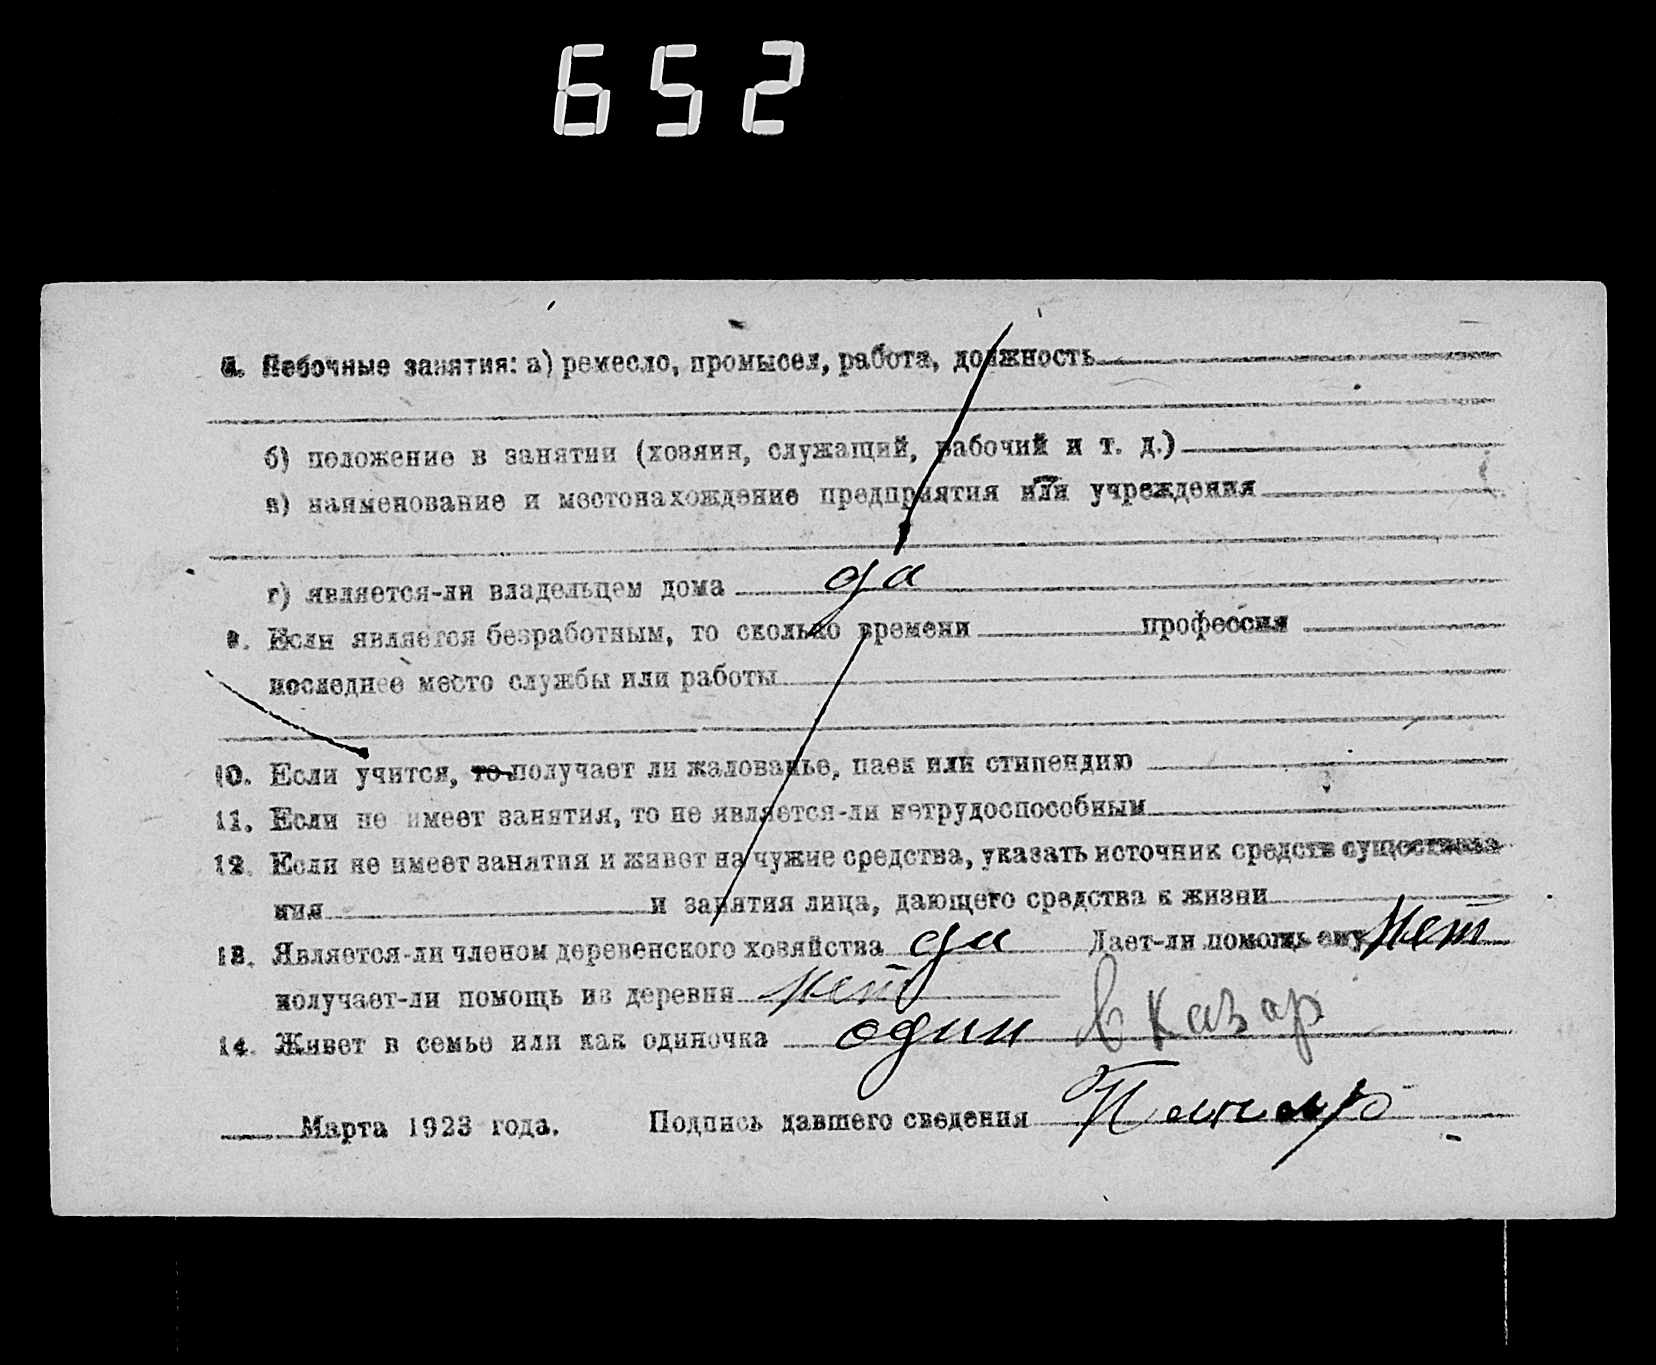 652
8. Побочные занятия: а) ремесло, промысел, работа, должность
б) положение в занятии (хозяин, служащий, рабочий и т. д.)
в) наименование и местонахождение предприятия или учреждения
г) является-ли владельцем дома да
9. Если является безработным, то сколько времени профессия
последнее место службы или работы
10. Если учится, то получает ли жалованье, паек или стипендию
11. Если не имеет занятия, то не является-ли нетрудоспособным
12. Если не имеет занятия и живет на чужие средства, указать источник средств существова
ния и занятия лица, дающего средства к жизни
13. Является-ли членом деревенского хозяйства да Дает-ли помощь ему нет
получает-ли помощь из деревня нет
14. Живет в семье или как одиночка один в казар
Марта 1923 года. Подпись давшего сведения